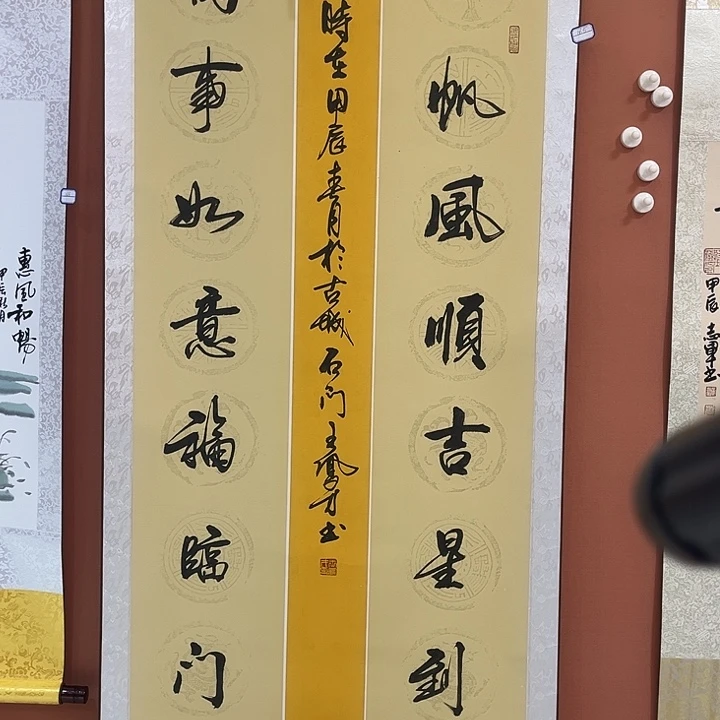 帆風順吉星到
事如意福臨门
時在甲辰春月於古城石门王鳳才书
惠風和暢
甲辰
甲辰志軍书